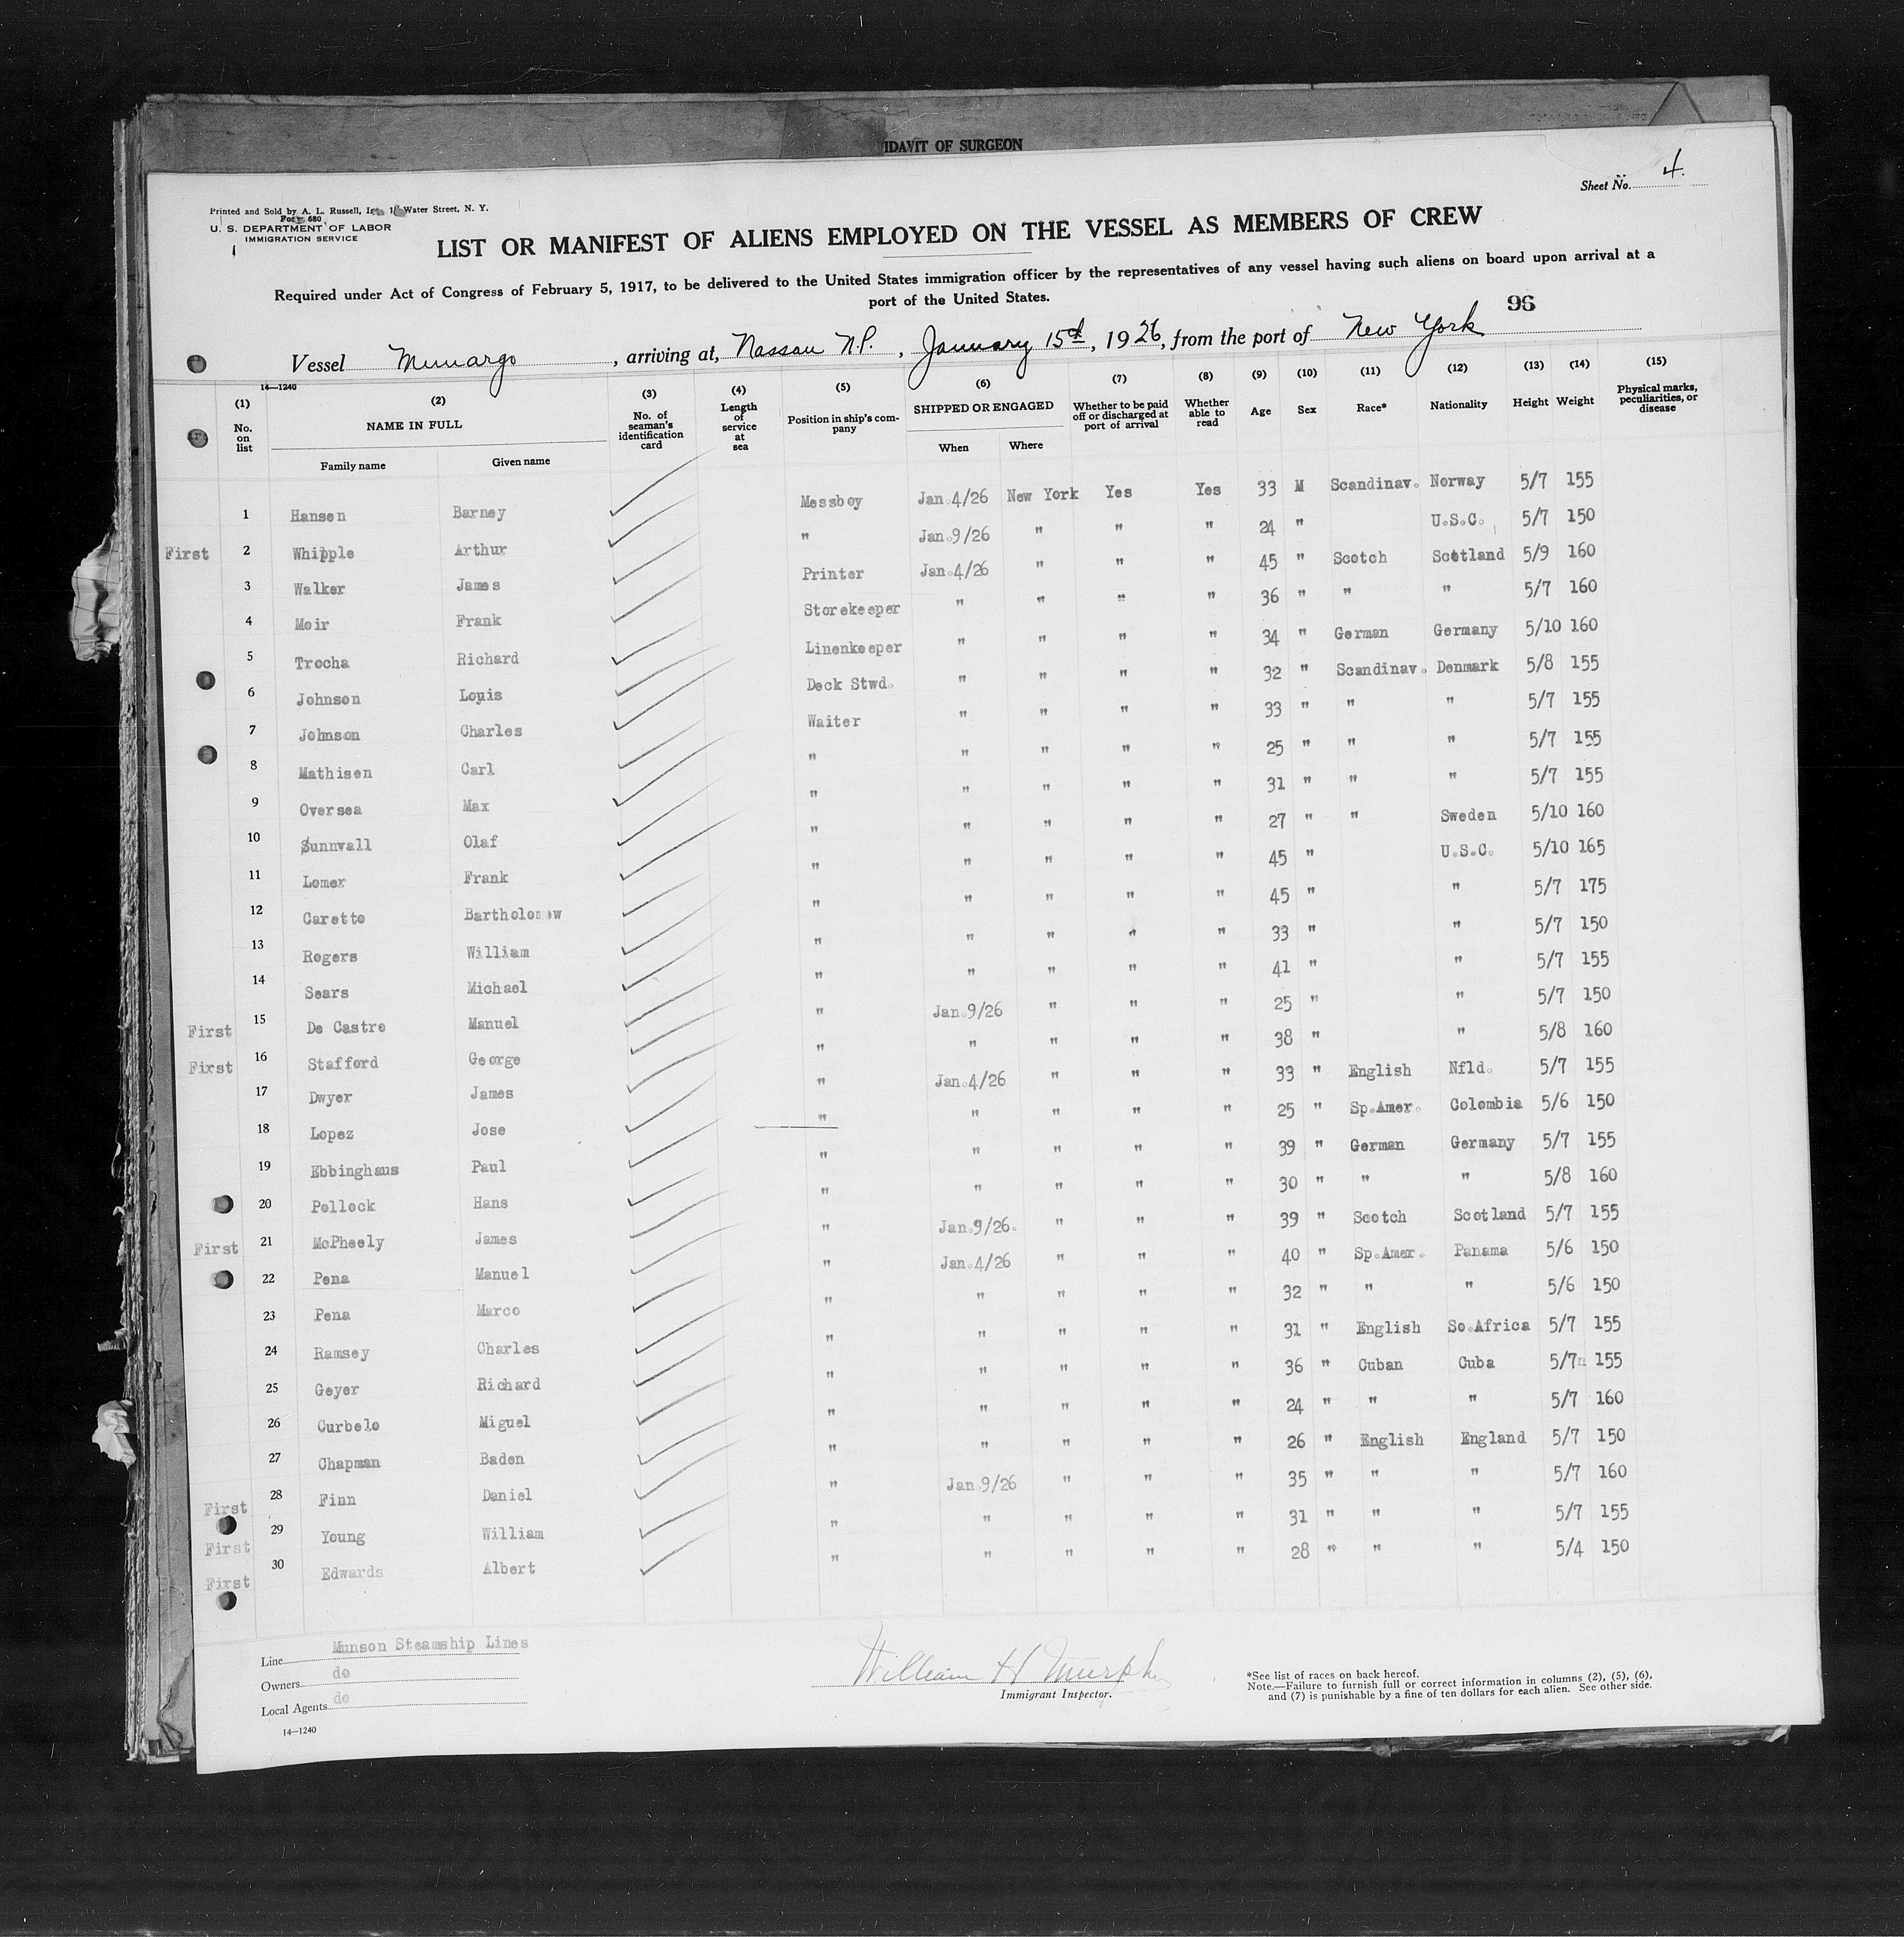 IDAVIT OF SURGEON
Sheet No. 4.
Printed and Sold by A. L. Russell, Water Street, N. Y.
Form 680
U. S. DEPARTMENT OF LABOR
IMMIGRATION SERVICE
LIST OR MANIFEST OF ALIENS EMPLOYED ON THE VESSEL AS MEMBERS OF CREW
Required under Act of Congress of February 5, 1917, to be delivered to the United States immigration officer by the representatives of any vessel having such aliens on board upon arrival at a
port of the United States.
96
Vessel Munargo, arriving at, Nassau N.P., January 15d, 1926, from the port of New York
14—1240
(1) No. on list (2) NAME IN FULL Family name Given name (3) No. of seaman's identification card (4) Length of service at sea (5) Position in ship's company (6) SHIPPED OR ENGAGED When Where (7) Whether to be paid off or discharged at port of arrival (8) Whether able to read (9) Age (10) Sex (11) Race* (12) Nationality (13) Height (14) Weight (15) Physical marks, peculiarities, or disease
1 Hansen Barney Messboy Jan.4/26 New York Yes Yes 33 M Scandinav. Norway 5/7 155
First 2 Whipple Arthur " Jan.9/26 " " " 24 " U.S.C. 5/7 150
3 Walker James Printer Jan.4/26 " " " 45 " Scotch Scotland 5/9 160
4 Moir Frank Storekeeper " " " " 36 " " " 5/7 160
5 Trocha Richard Linenkeeper " " " " 34 " German Germany 5/10 160
6 Johnson Louis Deck Stwd. " " " " 32 " Scandinav. Denmark 5/8 155
7 Johnson Charles Waiter " " " " 33 " " " 5/7 155
8 Mathisen Carl " " " " " 25 " " " 5/7 155
9 Oversea Max " " " " " 31 " " " 5/7 155
10 Sunnvall Olaf " " " " " 27 " " Sweden 5/10 160
11 Lomer Frank " " " " " 45 " U.S.C. 5/10 165
12 Caretto Bartholomew " " " " " 45 " " 5/7 175
13 Rogers William " " " " " 33 " " 5/7 150
14 Sears Michael " " " " " 41 " " 5/7 155
First 15 De Castro Manuel " Jan.9/26 " " " 25 " " 5/7 150
First 16 Stafford George " " " " " 38 " " 5/8 160
17 Dwyer James " Jan.4/26 " " " 33 " English Nfld. 5/7 155
18 Lopez Jose " " " " " 25 " Sp.Amer. Colombia 5/6 150
19 Ebbinghaus Paul " " " " " 39 " German Germany 5/7 155
20 Pollock Hans " " " " " 30 " " " 5/8 160
First 21 McPheely James " Jan.9/26. " " " 39 " Scotch Scotland 5/7 155
22 Pena Manuel " Jan.4/26 " " " 40 " Sp.Amer. Panama 5/6 150
23 Pena Marco " " " " " 32 " " " 5/6 150
24 Ramsey Charles " " " " " 31 " English So.Africa 5/7 155
25 Geyer Richard " " " " " 36 " Cuban Cuba 5/7 155
26 Curbelo Miguel " " " " " 24 " " " 5/7 160
27 Chapman Baden " " " " " 26 " English England 5/7 150
First 28 Finn Daniel " Jan.9/26 " " " 35 " " " 5/7 160
First 29 Young William " " " " " 31 " " " 5/7 155
First 30 Edwards Albert " " " " " 28 " " " 5/4 150
Line Munson Steamship Lines
Owners do
Local Agents do
14—1240
William H Murphy
Immigrant Inspector.
*See list of races on back hereof.
Note.—Failure to furnish full or correct information in columns (2), (5), (6),
and (7) is punishable by a fine of ten dollars for each alien. See other side.